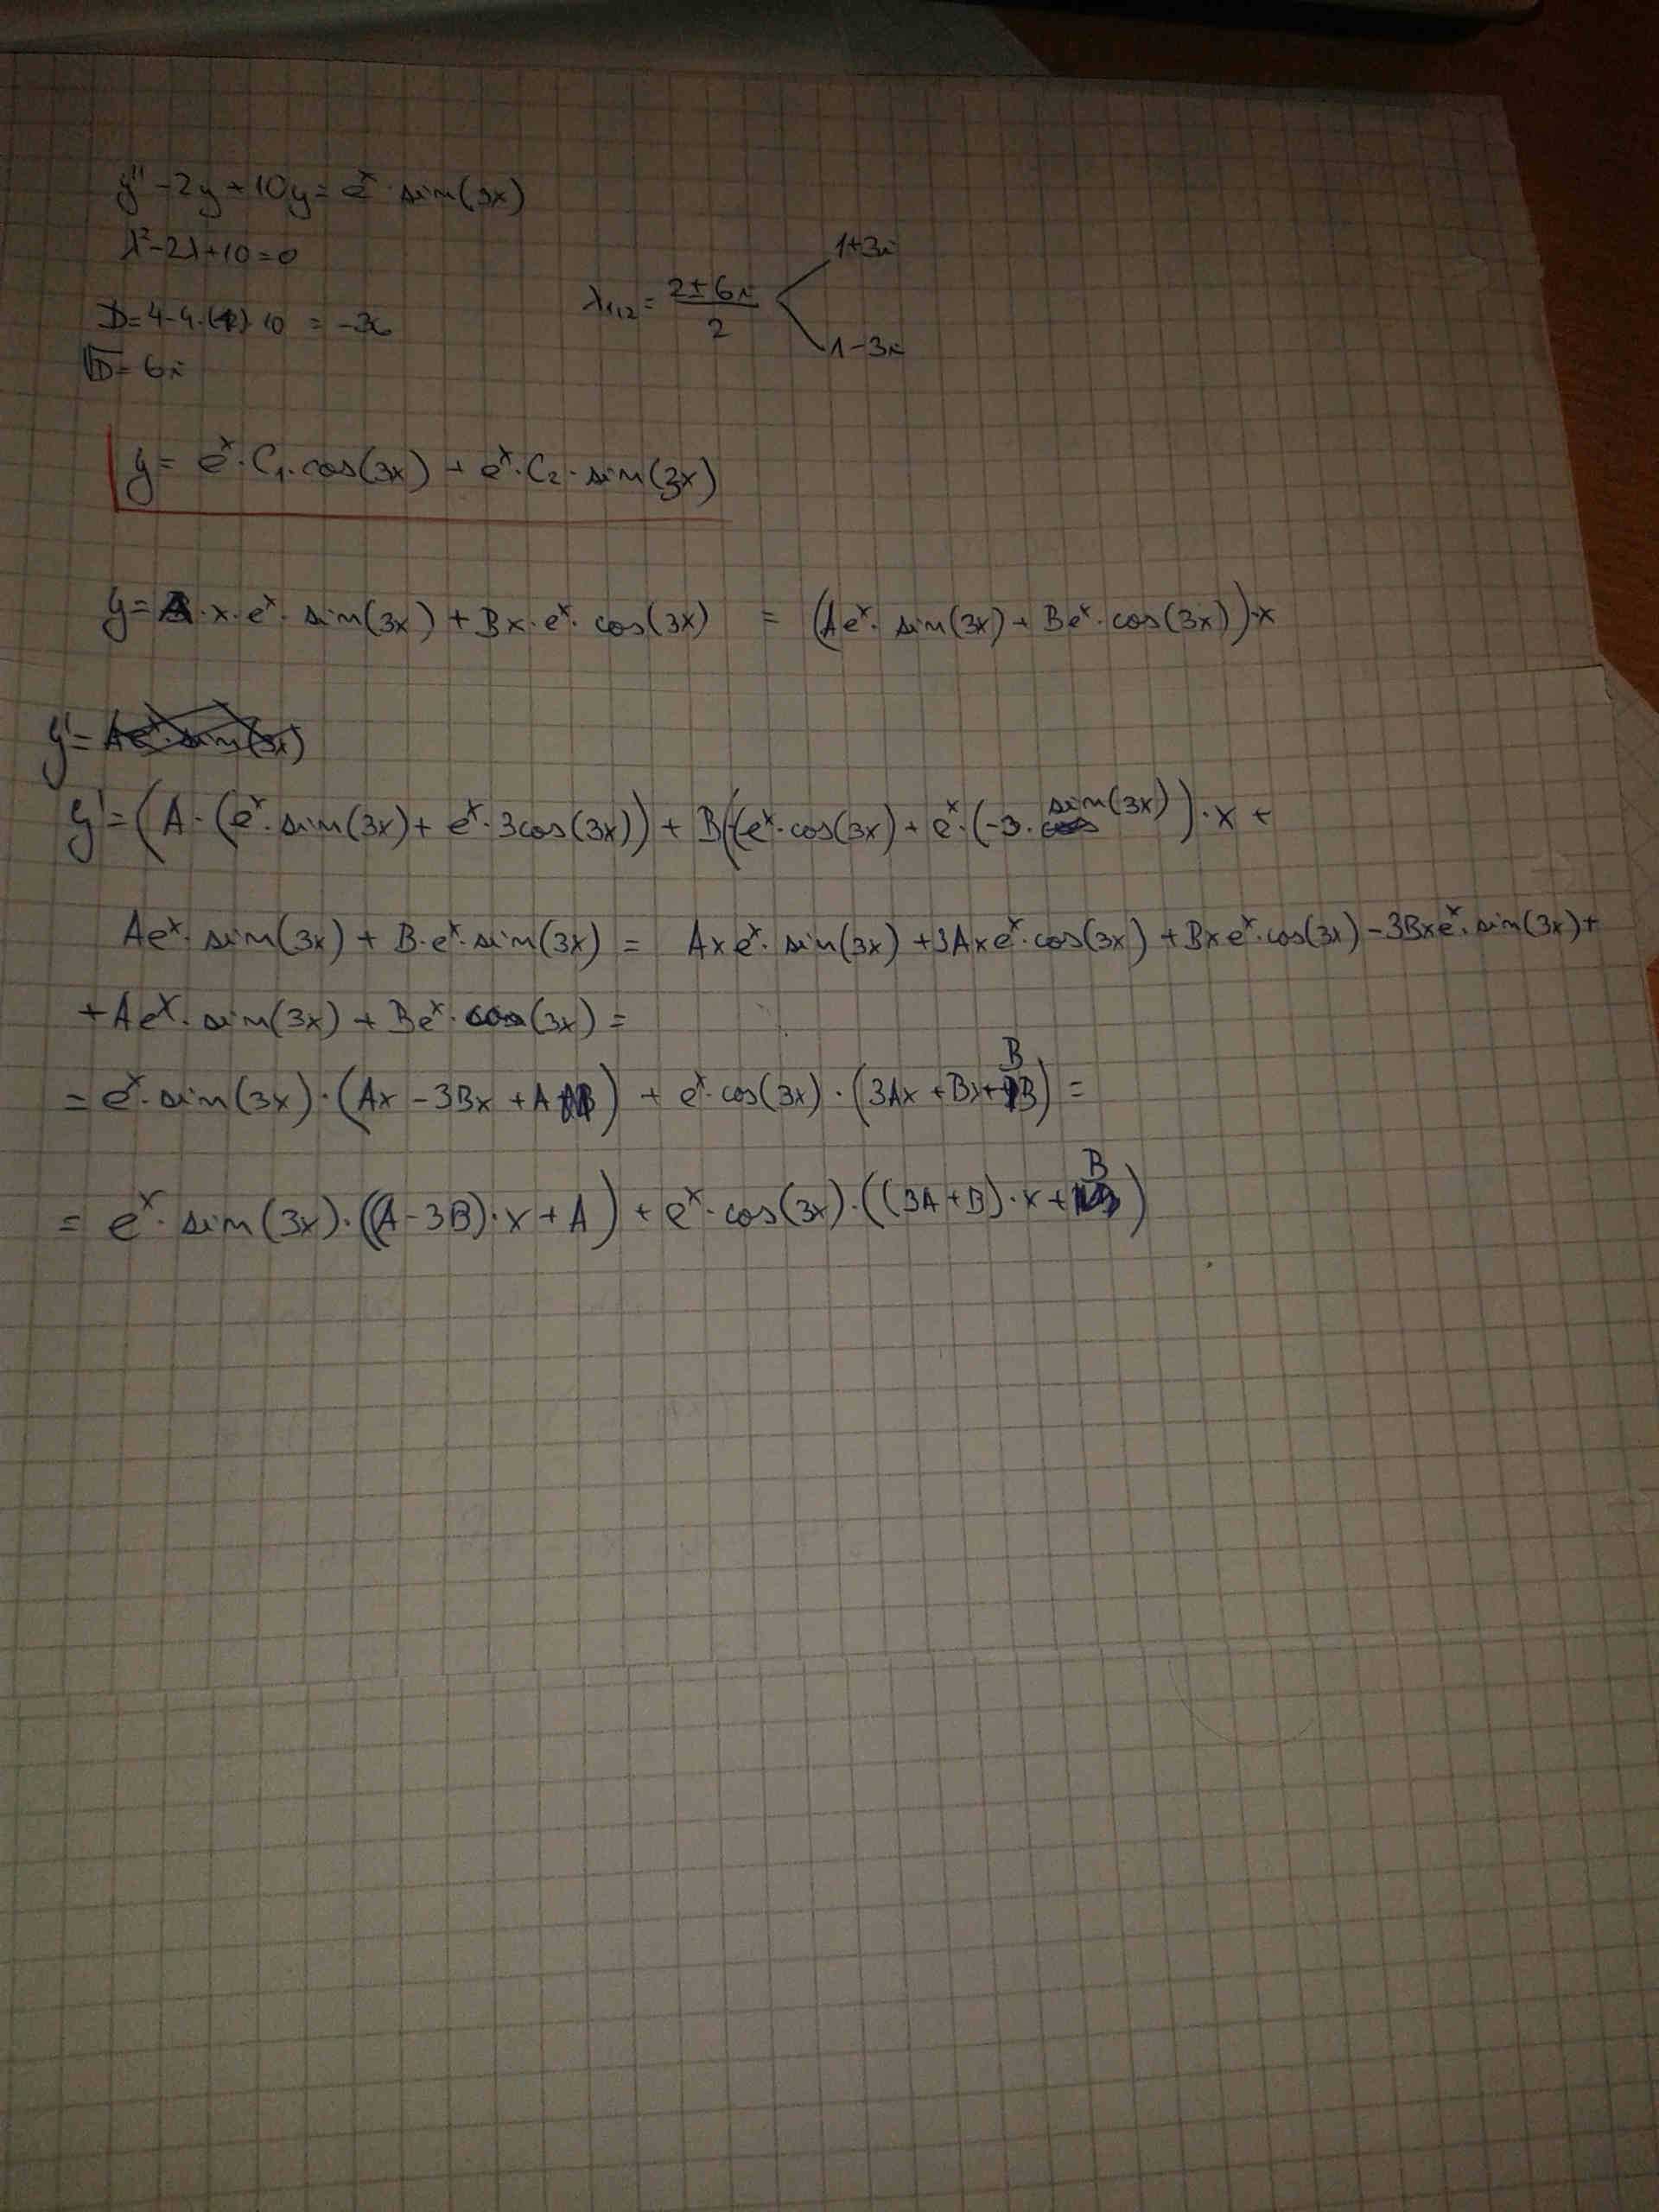 y'' - 2y + 10y = e^x · sin(3x)
λ² - 2λ + 10 = 0
D = 4 - 4 · (1) · 10 = -36
√D = 6i
λ₁,₂ = (2 ± 6i)/2
1+3i
1-3i
y = e^x · C₁ · cos(3x) + e^x · C₂ · sin(3x)
y = A · x · e^x · sin(3x) + Bx · e^x · cos(3x) = (Ae^x · sin(3x) + Be^x · cos(3x)) · x
y' = Ae^x · sin(3x)
y' = (A · (e^x · sin(3x) + e^x · 3cos(3x)) + B((e^x · cos(3x) + e^x · (-3 · sin(3x)) · x +
Ae^x · sin(3x) + B · e^x · sin(3x) = Axe^x · sin(3x) + 3Axe^x · cos(3x) + Bxe^x · cos(3x) - 3Bxe^x · sin(3x) +
+ Ae^x · sin(3x) + Be^x · cos(3x) =
= e^x · sin(3x) · (Ax - 3Bx + A) + e^x · cos(3x) · (3Ax + Bx + B) =
= e^x · sin(3x) · ((A - 3B) · x + A) + e^x · cos(3x) · ((3A + B) · x + B)